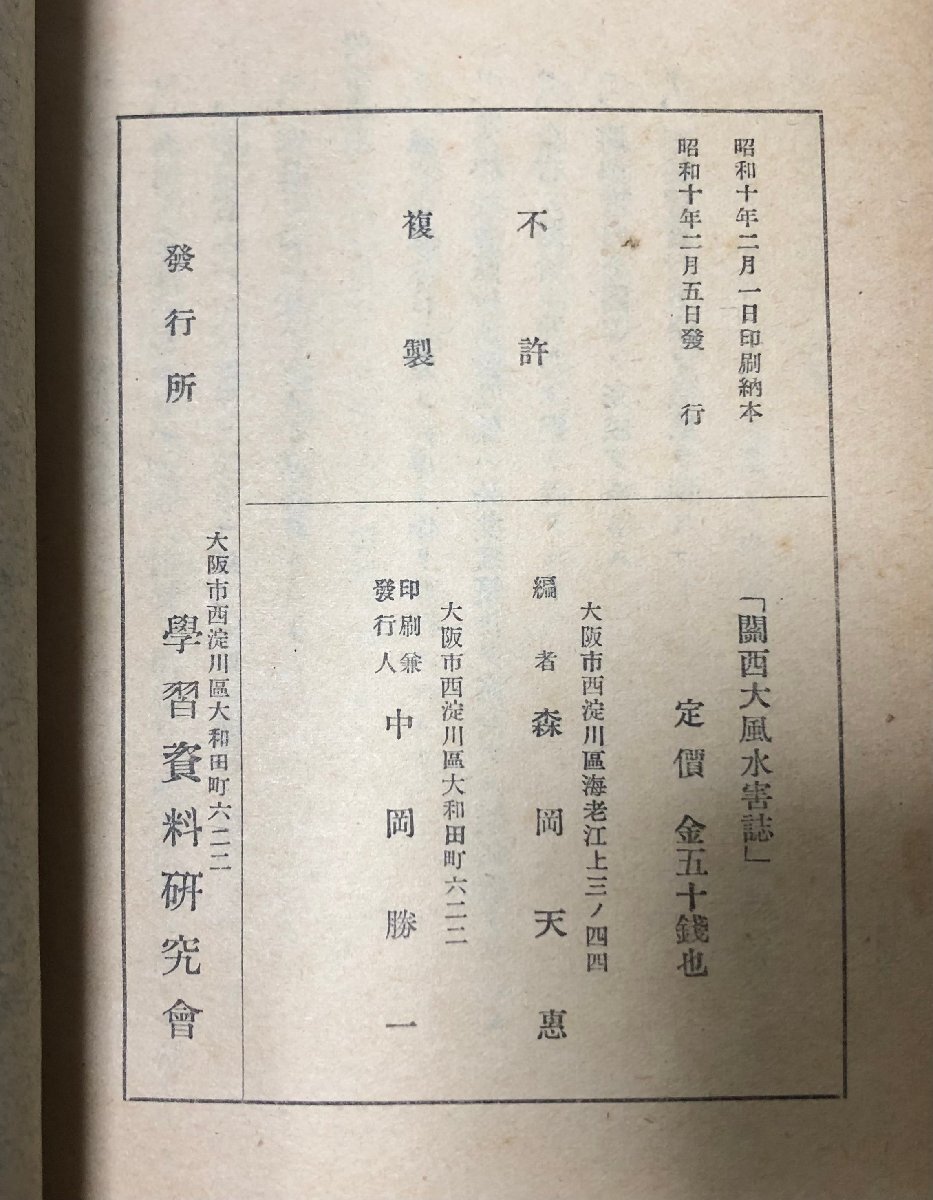 昭和十年二月一日印刷納本
昭和十年二月五日發行
不許
複製
「關西大風水害誌」
定價 金五十錢也
大阪市西淀川區海老江上三ノ四四
編者 森岡天惠
大阪市西淀川區大和田町六二二
印刷兼
發行人 中岡勝一
大阪市西淀川區大和田町六二二
發行所 學習資料硏究會